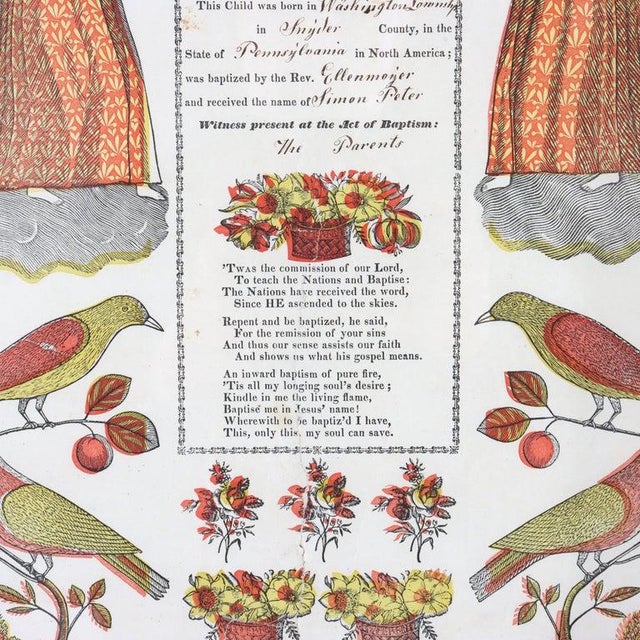 This Child was born in Washington Township
in Snyder County, in the
State of Pennsylvania in North America;
was baptized by the Rev. Ellenmoyer
and received the name of Simon Peter
Witness present at the Act of Baptism:
The Parents
'TWAS the commission of our Lord,
To teach the Nations and Baptise:
The Nations have received the word,
Since HE ascended to the skies.
Repent and be baptized, he said,
For the remission of your sins
And thus our sense assists our faith
And shows us what his gospel means.
An inward baptism of pure fire,
'Tis all my longing soul's desire;
Kindle in me the living flame,
Baptise me in Jesus' name!
Wherewith to be baptiz'd I have,
This, only this, my soul can save.